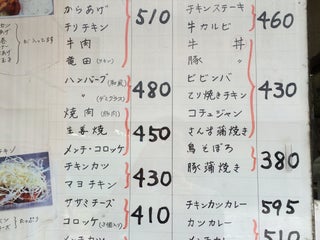 からあげ
チリチキン
牛肉
竜田(チキン)
510
ハンバーグ(和風)
〃(デミグラス)
480
焼肉(豚肉)
生姜焼
450
メンチ・コロッケ
チキンカツ
マヨチキン
430
ササミチーズ
コロッケ(2個入り)
410
チキンステーキ
牛カルビ
460
牛丼
豚〃
ビビンバ
てり焼きチキン
コチュジャン
さんま蒲焼き
430
鳥そぼろ
豚蒲焼き
380
チキンカツカレー
595
カツカレー
510